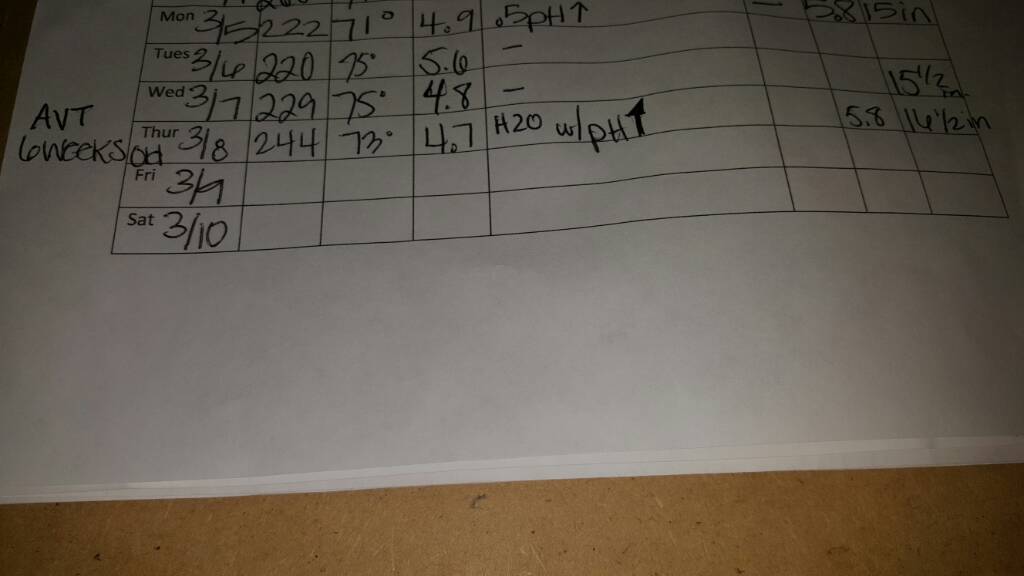 Mon 3/5 222 71° 4.9 .5pH↑ — 5.8 15in
Tues 3/6 220 75° 5.6 –
Wed 3/7 229 75° 4.8 – 15 1/2 in
AVT
6 weeks old
Thur 3/8 244 73° 4.7 H20 w/pH↑ 5.8 16 1/2 in
Fri 3/9
Sat 3/10